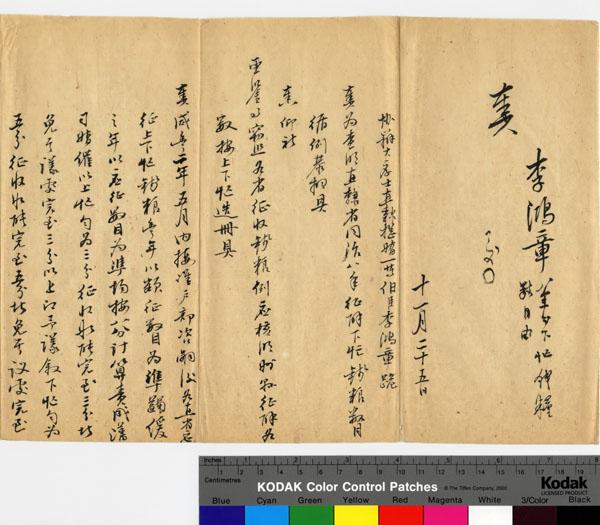 奏
李鴻章
十一月二十五日
協辦大學士直隸總督一等伯臣李鴻章跪
奏為查明直隸省同治八年徵解下忙錢糧數目
循例恭摺具
奏仰祈
聖鑒事竊照各省徵收錢糧例應核明
數按上下忙造冊具
奏咸豐二年五月內接准戶部咨
徵上下忙錢糧 年以額徵數目為準蠲緩
之年以應徵數目為準均按十分計算責成藩
司督催以上忙勻為三分徵收如能完至三分者
免其議處完至三分以上 予議敘下忙勻為
五分徵收如能完至五分者免其議處完至
Inches
Centimetres
KODAK Color Control Patches
© The Tiffen Company, 2000
Kodak
LICENSED PRODUCT
Blue Cyan Green Yellow Red Magenta White 3/Color Black